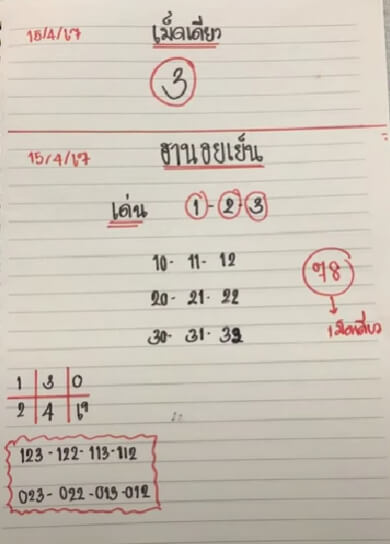 15/4/67 เม็ดเดียว
3
15/4/67 ฮานอยเย็น
เด่น 1-2-3
10- 11- 12
78
20- 21- 22
เม็ดเดียว
30- 31- 32
1 3 0
2 4
123-122-113-112
023-022-013-012